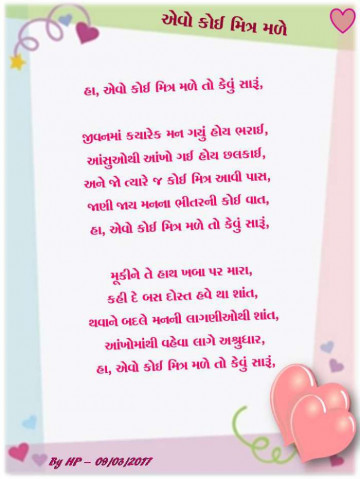 એવો કોઈ મિત્ર મળે
હા, એવો કોઈ મિત્ર મળે તો કેવું સારૂં,
જીવનમાં કયારેક મન ગયું હોય ભરાઈ,
આંસુઓથી આંખો ગઈ હોય છલકાઈ,
અને જો ત્યારે જ કોઈ મિત્ર આવી પાસ,
જાણી જાય મનના ભીતરની કોઈ વાત,
હા, એવો કોઈ મિત્ર મળે તો કેવું સારૂં,
મૂકીને તે હાથ ખભા પર મારા,
કહી દે બસ દોસ્ત હવે થા શાંત,
થવાને બદલે મનની લાગણીઓથી શાંત,
આંખોમાંથી વહેવા લાગે અશ્રુધાર,
હા, એવો કોઈ મિત્ર મળે તો કેવું સારૂં,
By HP – 09/03/2017